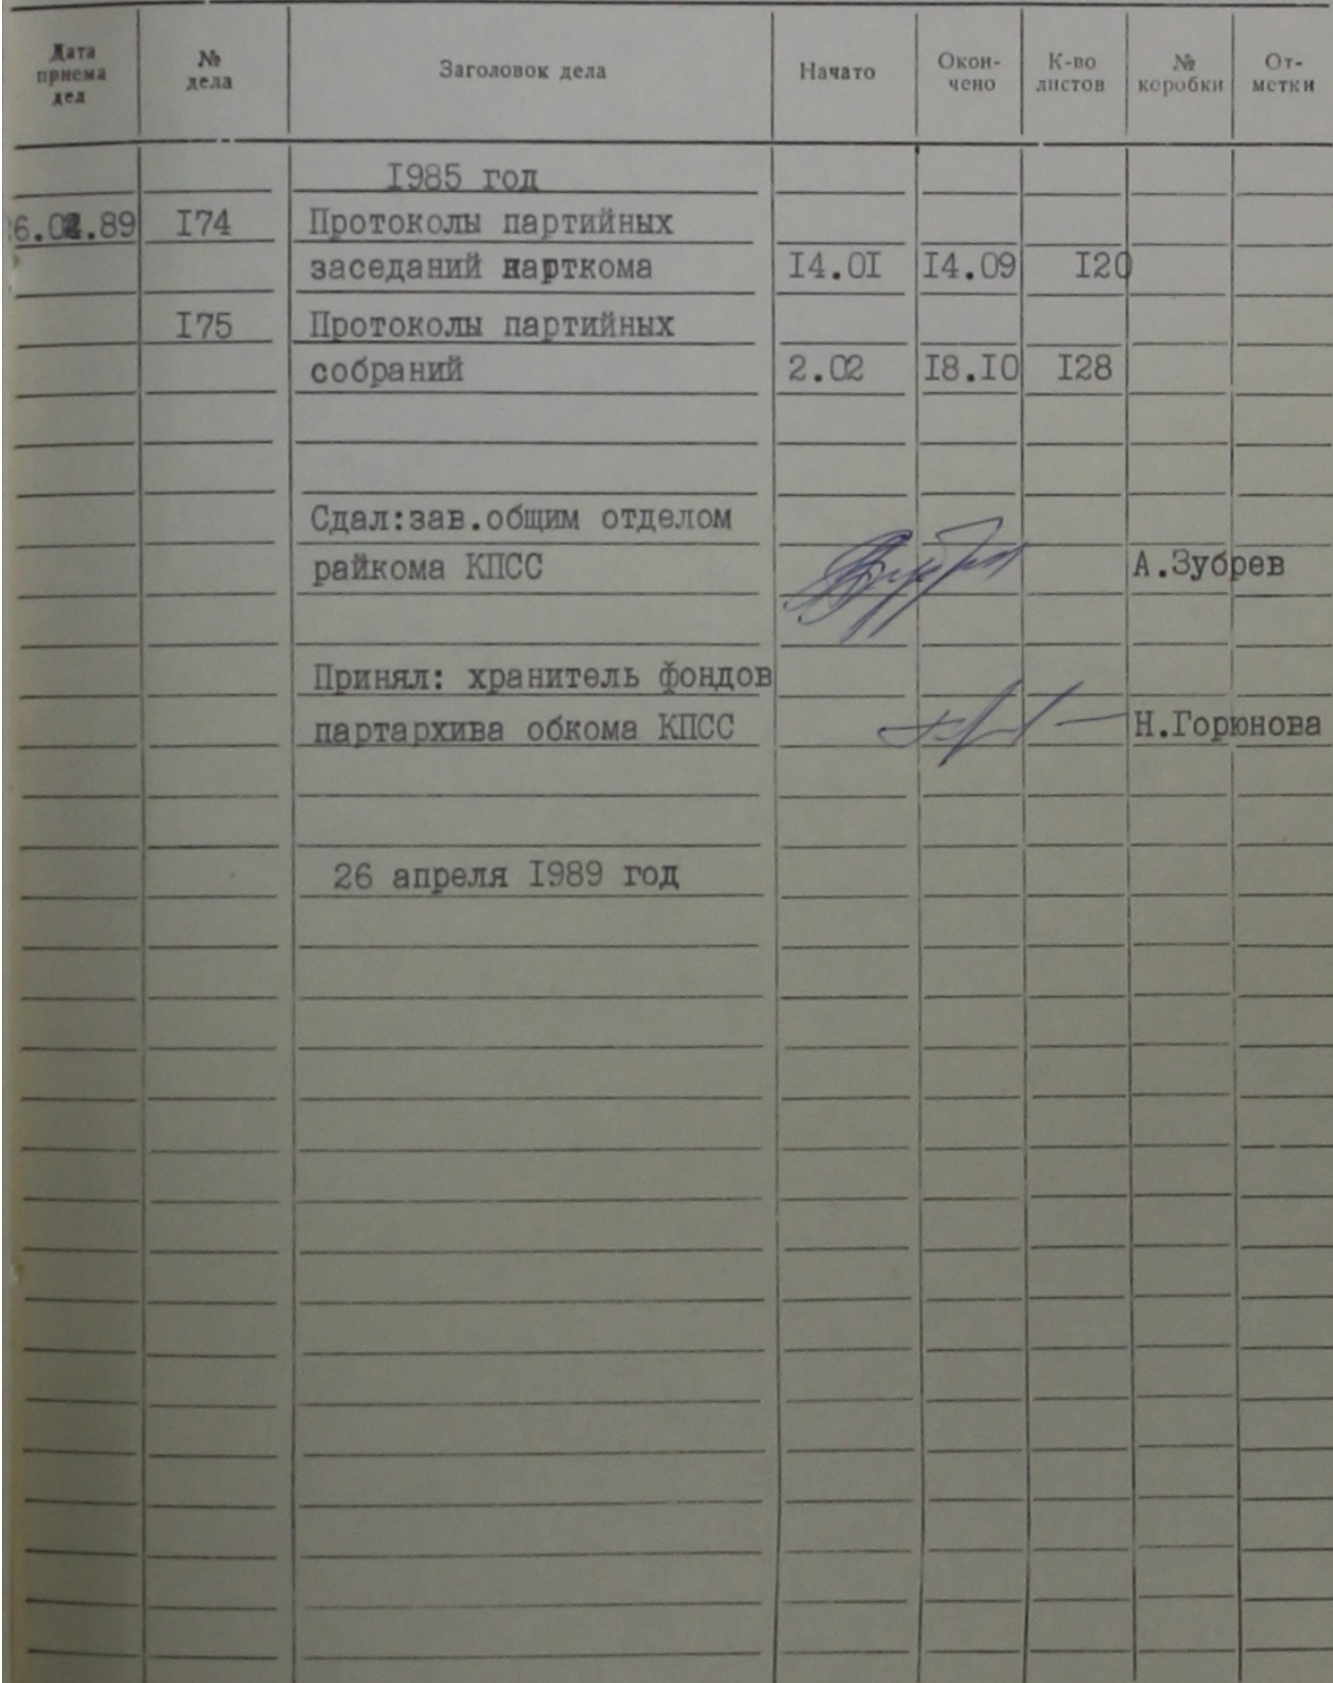 Дата приема дел № дела Заголовок дела Начато Окон- чено К-во листов № коробки От- метки
1985 год
174 Протоколы партийных
заседаний парткома 14.01 14.09 120
175 Протоколы партийных
собраний 2.02 18.10 128
Сдал:зав.общим отделом
райкома КПСС А.Зубрев
Принял: хранитель фондов
партархива обкома КПСС Н.Горюнова
26 апреля 1989 год